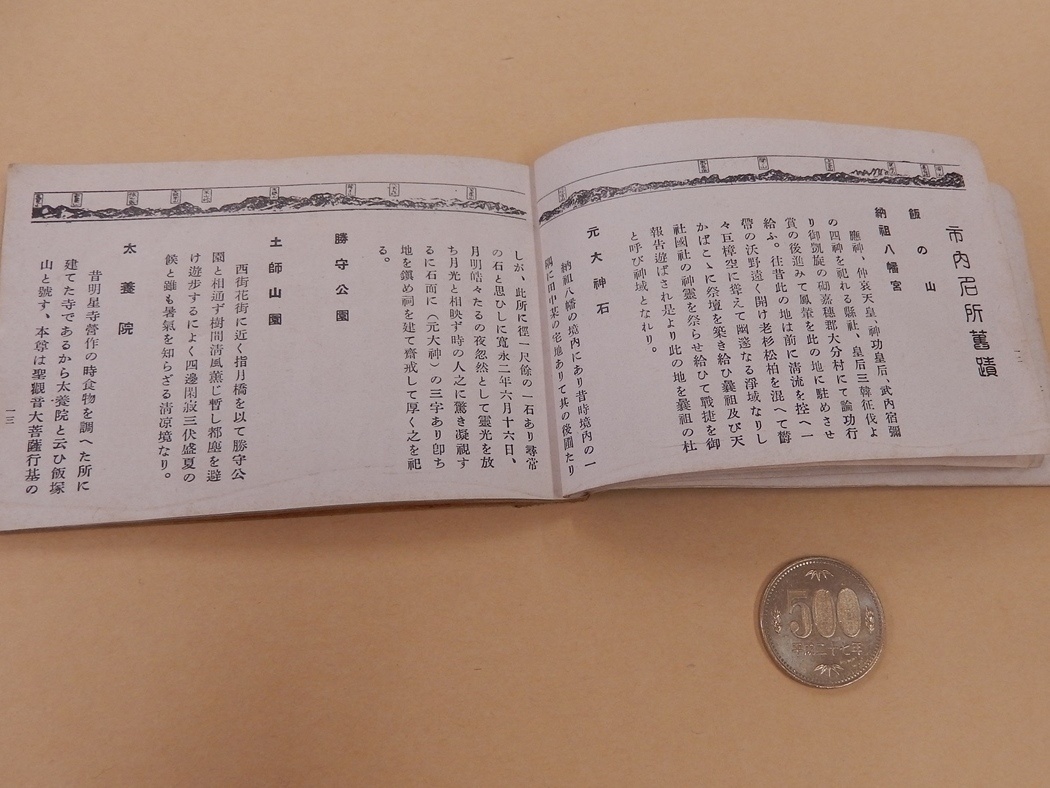 市内名所舊蹟
飯の山
納祖八幡宮
應神、仲哀天皇、神功皇后、武内宿彌
の四神を祀れる縣社、皇后三韓征伐よ
り御凱旋の砌嘉穂郡大分村にて論功行
賞の後進みて鳳輦を此の地に駐めさせ
給ふ。往昔此の地は前に清流を控へ一
帶の沃野遠く開け老杉松柏を混へて欝
々巨樟空に聳えて幽邃なる淨域なりし
かばこゝに祭壇を築き給ひ曩祖及び天
社國社の神靈を祭らせ給ひて戰捷を御
報告遊ばされ是より此の地を曩祖の杜
と呼び神域となれり。
元大神石
納祖八幡の境内にあり昔時境内の一
隅に田中某の宅地ありて其の後園たり
しが、此所に徑一尺餘の一石あり尋常
の石と思ひしに寛永二年六月十六日、
月明皓々たるの夜忽然として靈光を放
ち月光と相映ず時の人之に驚き凝視す
るに石面に(元大神)の三字あり卽ち
地を鎭め祠を建て齋戒して厚く之を祀
る。
勝守公園
土師山園
西街花街に近く指月橋を以て勝守公
園と相通ず樹間清風薫じ暫し都塵を避
け遊歩するによく四邊閑寂三伏盛夏の
候と雖も暑氣を知らざる清凉境なり。
太養院
昔明星寺營作の時食物を調へた所に
建てた寺であるから太養院と云ひ飯塚
山と號す、本尊は聖觀音大菩薩行基の
一三
500